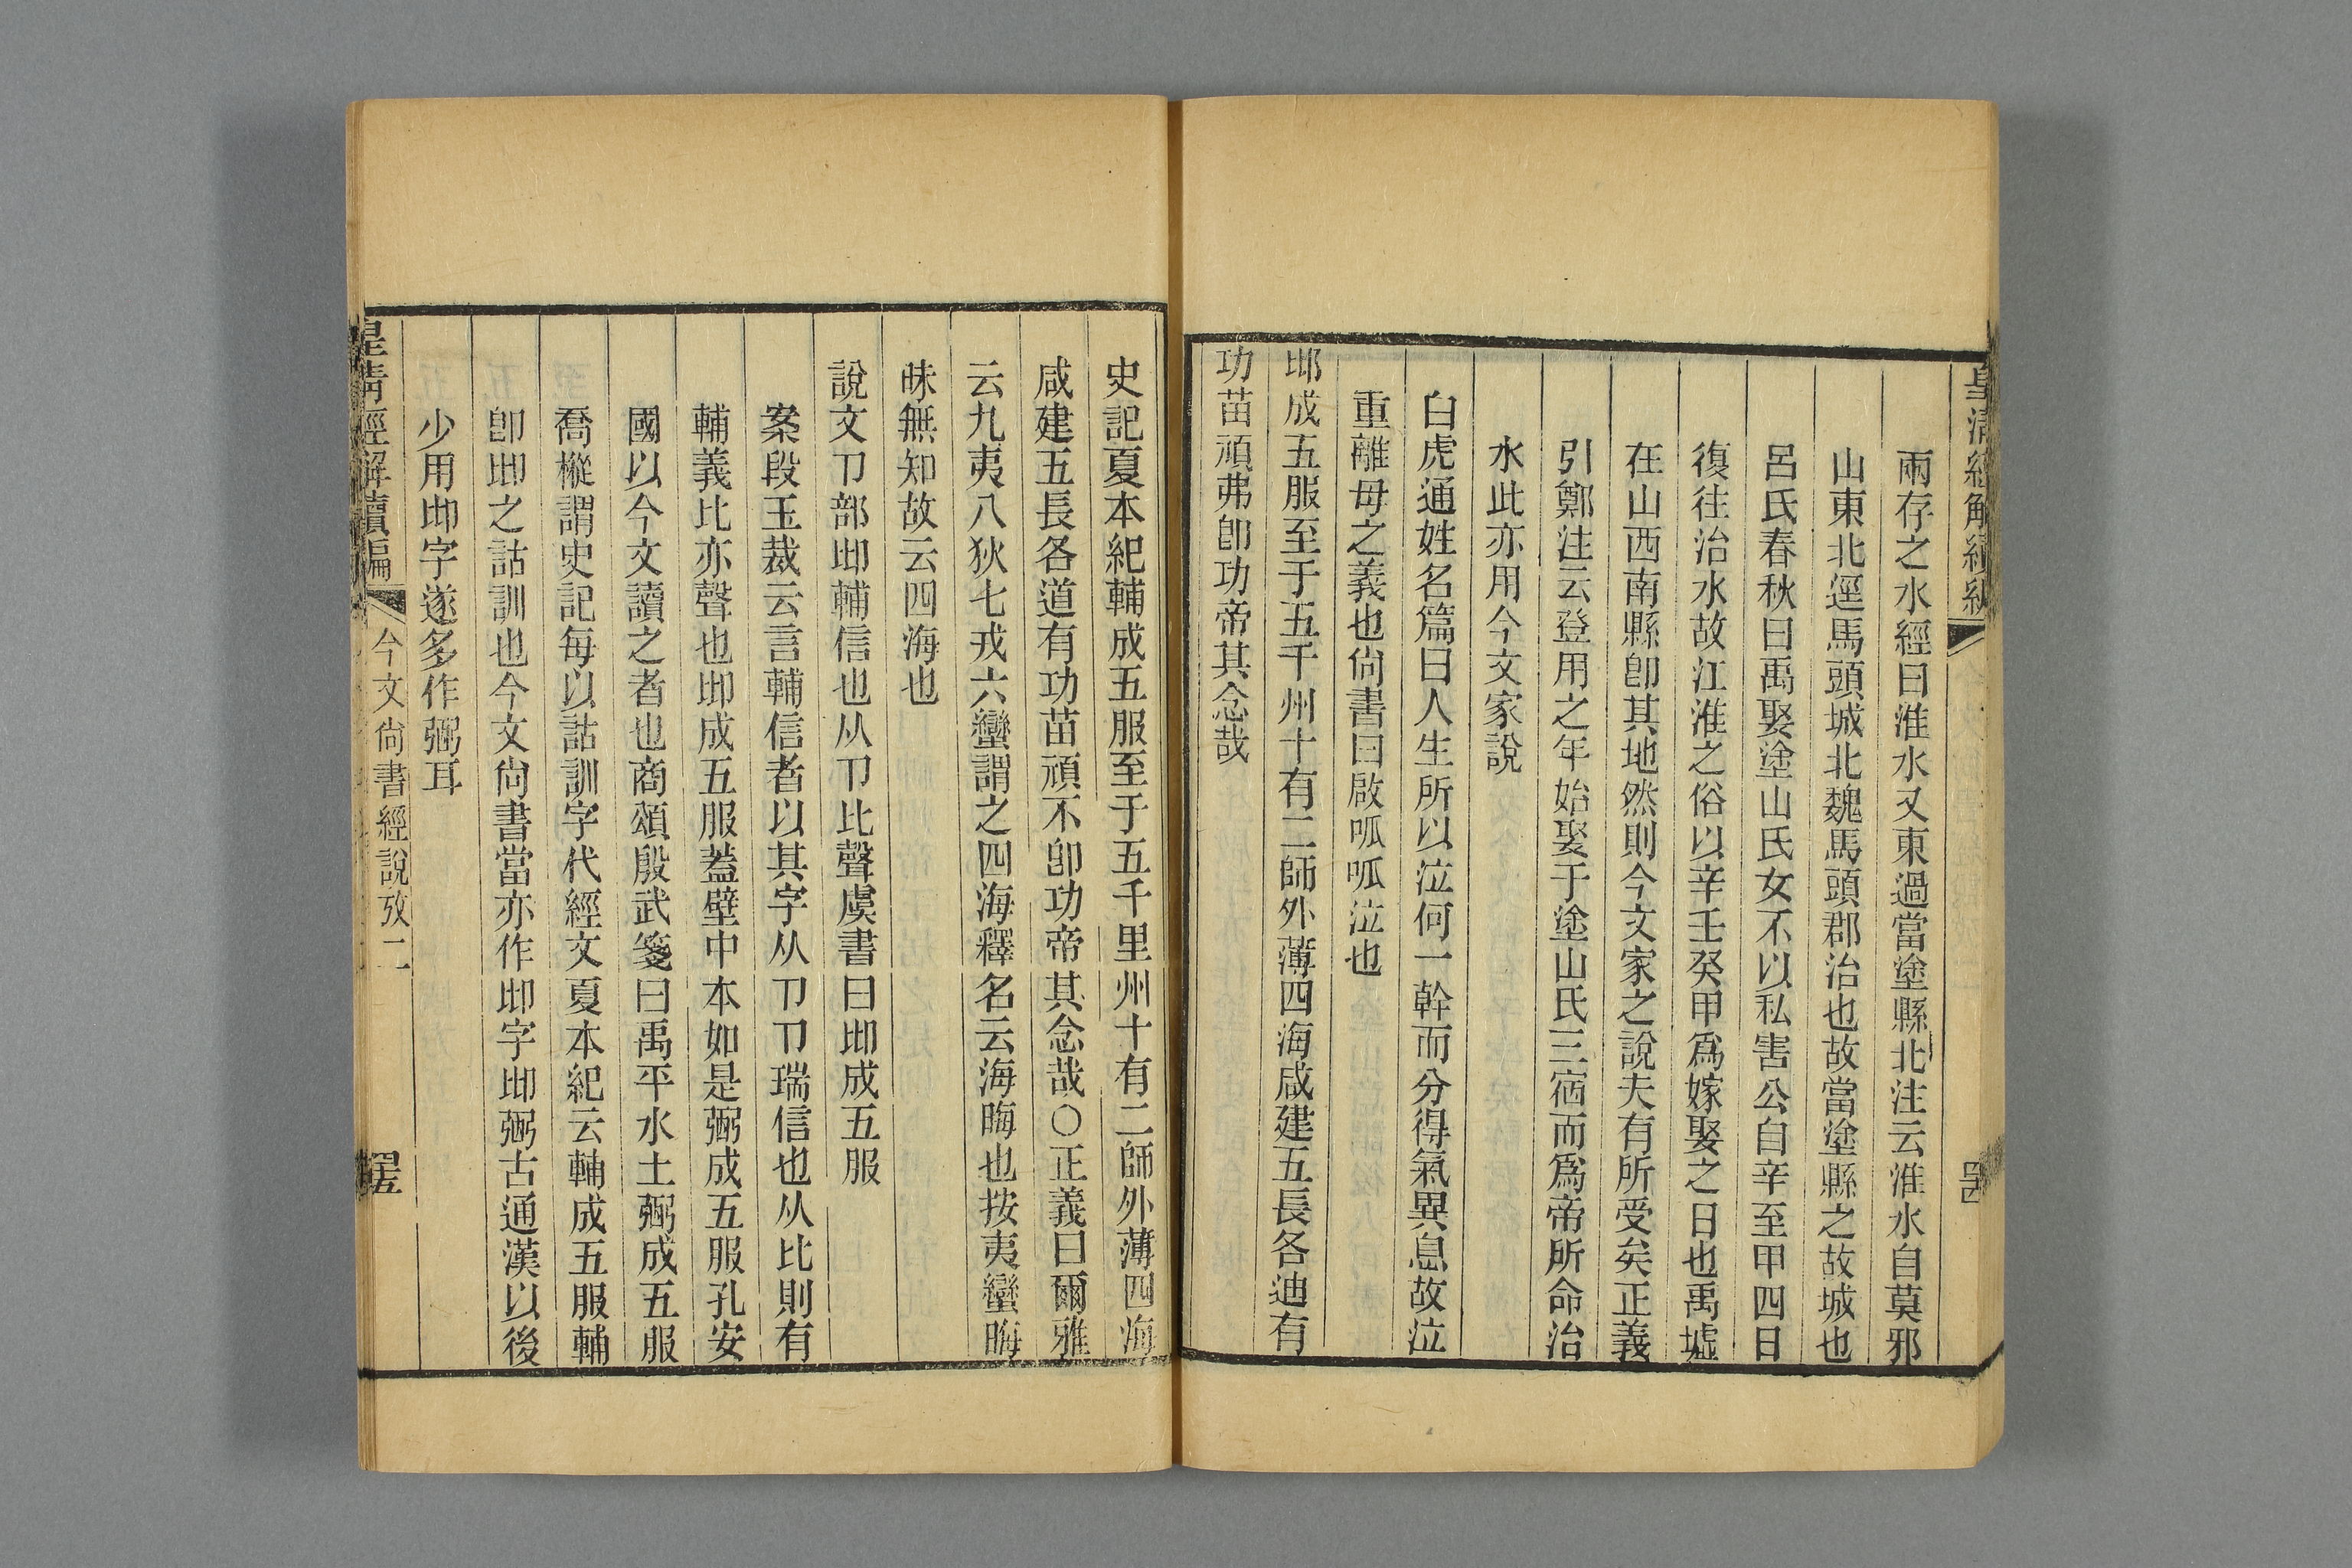 皇清經解續編
兩存之水經曰淮水又東過當塗縣北注云淮水自莫邪
山東北逕馬頭城北魏馬頭郡治也故當塗縣之故城也
呂氏春秋曰禹娶塗山氏女不以私害公自辛至甲四日
復往治水故江淮之俗以辛壬癸甲爲嫁娶之日也禹墟
在山西南縣卽其地然則今文家之說夫有所受矣正義
引鄭注云登用之年始娶于塗山氏三宿而爲帝所命治
水此亦用今文家說
白虎通姓名篇曰人生所以泣何一幹而分得氣異息故泣
重離母之義也尙書曰啟呱呱泣也
䣛成五服至于五千州十有二師外薄四海咸建五長各迪有
功苗頑弗卽功帝其念哉
史記夏本紀輔成五服至于五千里州十有二師外薄四海
咸建五長各道有功苗頑不卽功帝其念哉○正義曰爾雅
云九夷八狄七戎六蠻謂之四海釋名云海晦也按夷蠻晦
昧無知故云四海也
說文卪部䣛輔信也从卪比聲虞書曰䣛成五服
案段玉裁云言輔信者以其字从卪卪瑞信也从比則有
輔義比亦聲也䣛成五服蓋壁中本如是弼成五服孔安
國以今文讀之者也商頌殷武箋曰禹平水土弼成五服
喬樅謂史記每以詁訓字代經文夏本紀云輔成五服輔
卽䣛之詁訓也今文尙書當亦作䣛字䣛弼古通漢以後
少用䣛字遂多作弼耳
皇清經解續編 今文尙書經說攷二